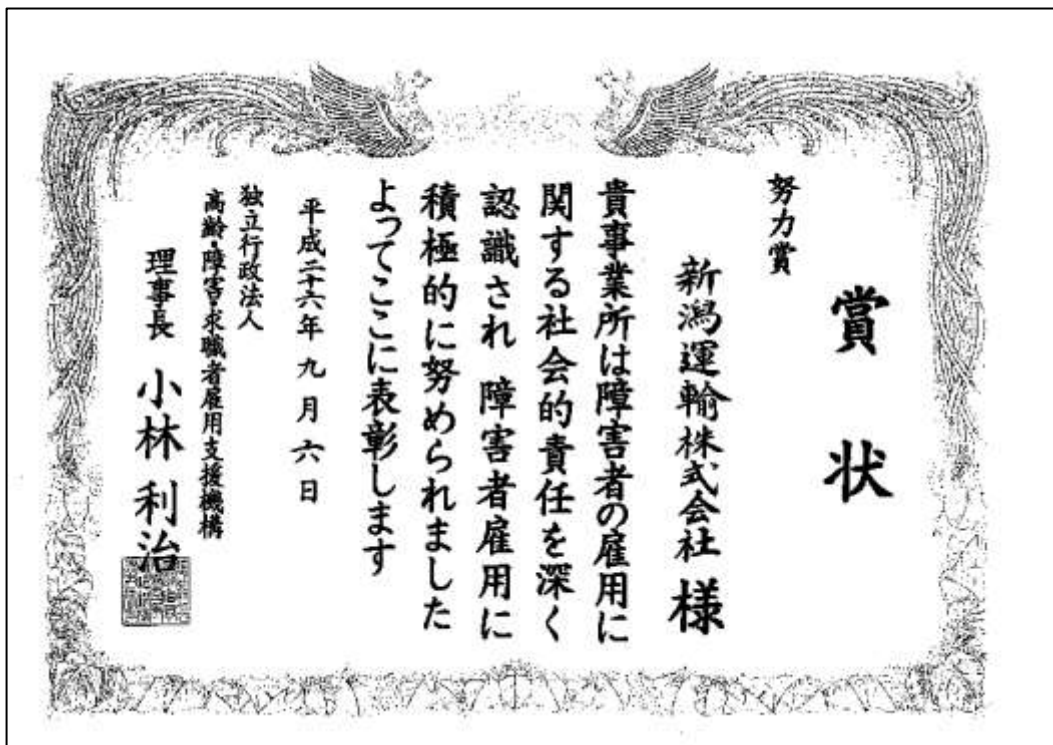 賞状
努力賞
新潟運輸株式会社 様
貴事業所は障害者の雇用に
関する社会的責任を深く
認識され 障害者雇用に
積極的に努められました
よってここに表彰します
平成二十六年九月六日
独立行政法人
高齢・障害・求職者雇用支援機構
理事長 小林 利治